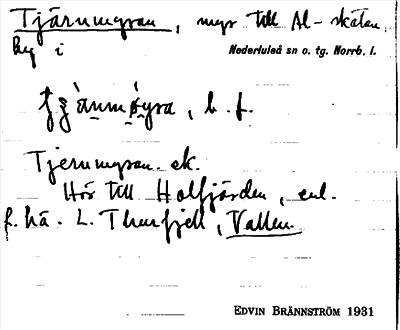 Tjärnmyran, myr till Al-skäten
by i Nederluleå sn o. tg. Norrb. l.
b. f.
Tjernmyran. ek.
Hör till Holfjärden, enl.
f. hä. L. Thurfjell, Vallen.
EDVIN BRÄNNSTRÖM 1931